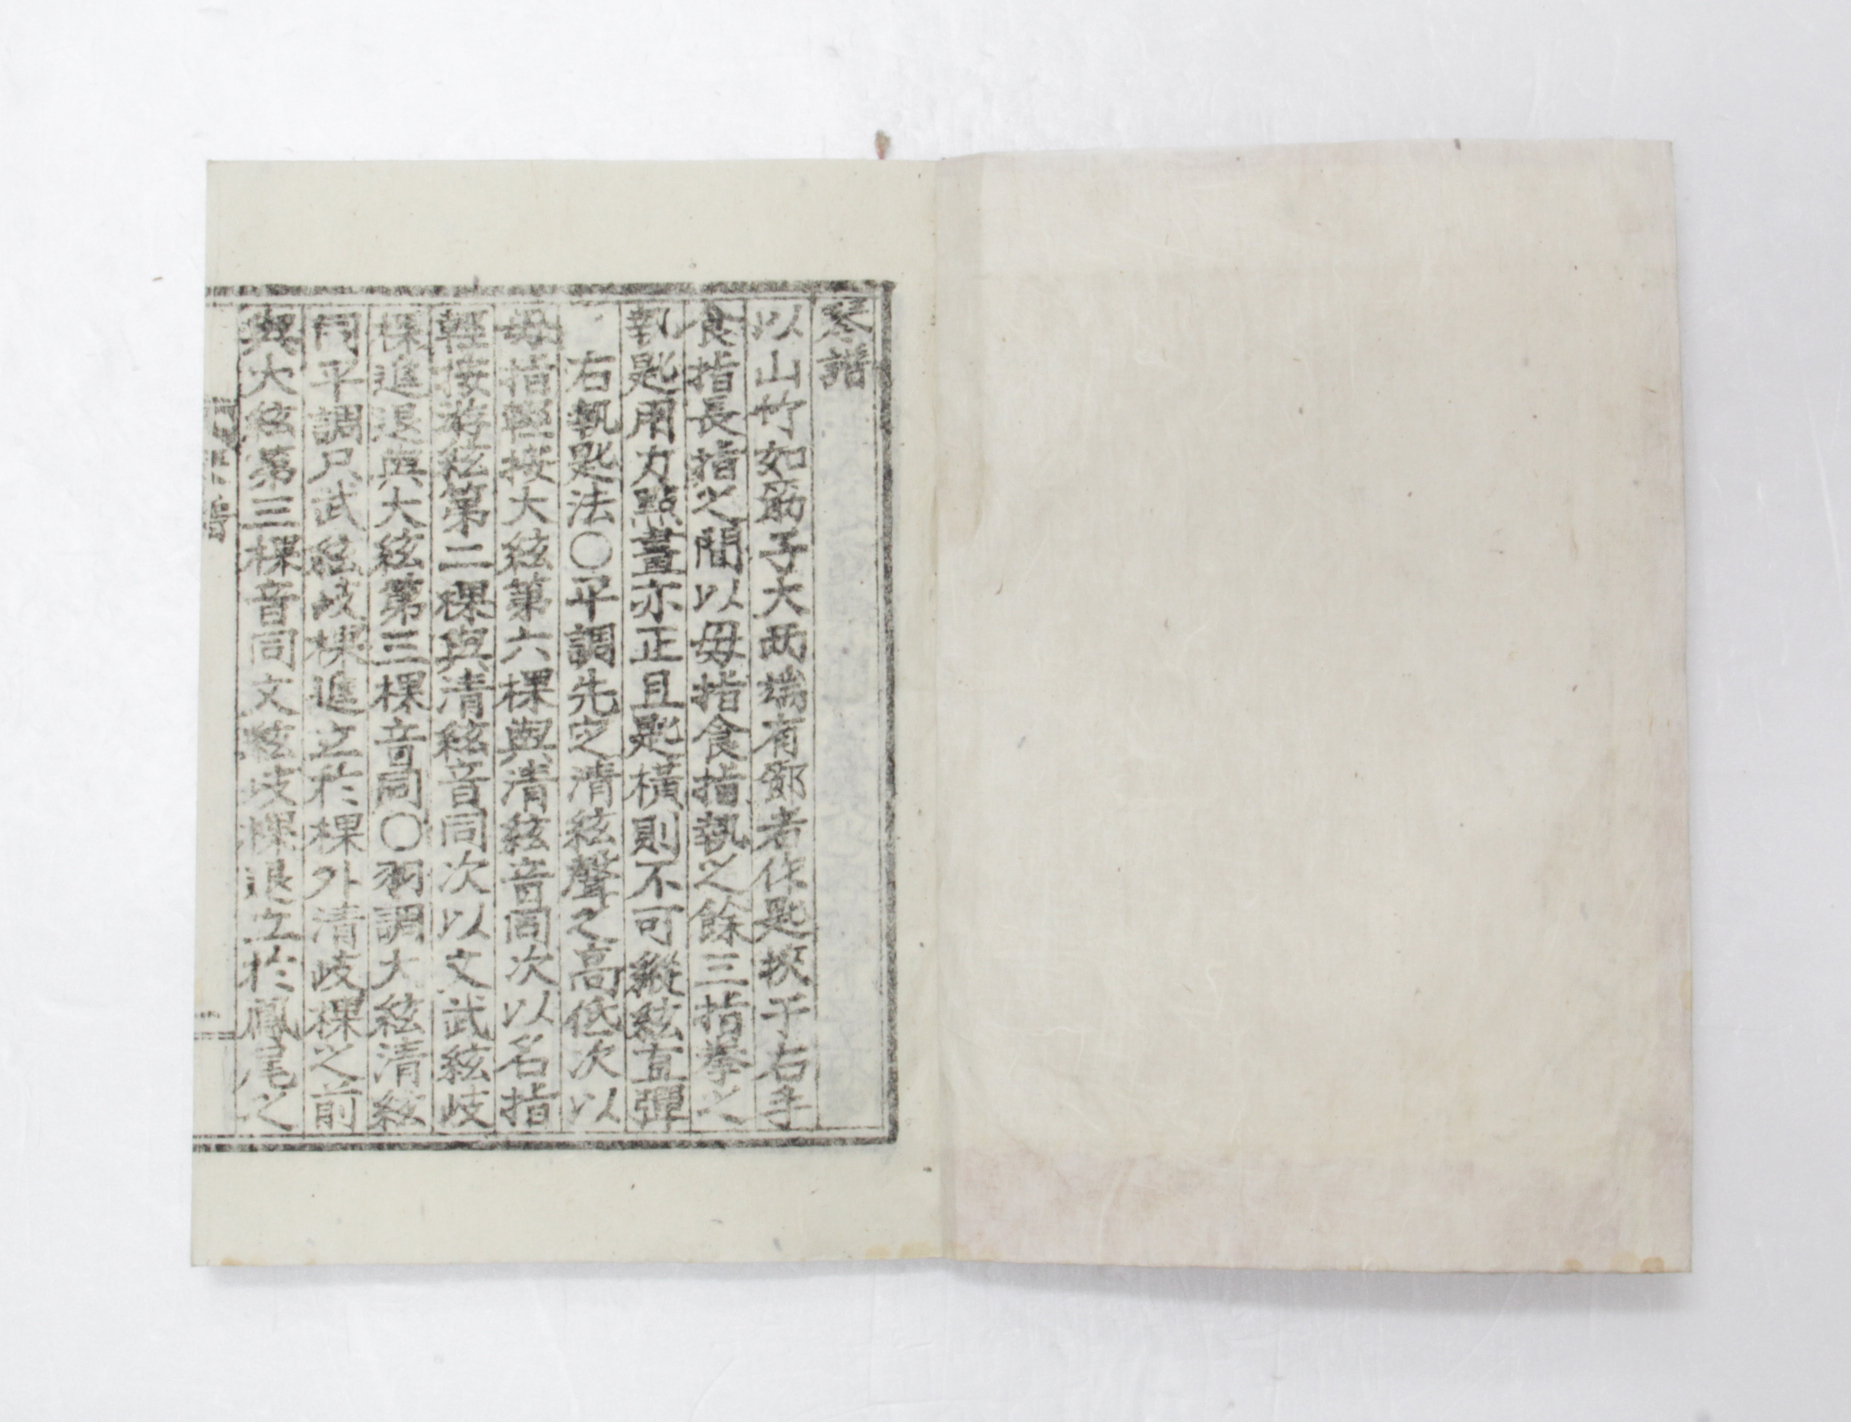 琴譜
以山竹如筋子大兩端有節者作匙挾于右手
食指長指之間以毋指食指執之餘三指拳之
執匙用力點畫亦正且匙橫則不可縱絃直彈
右執匙法〇平調先定清絃聲之高低次以
毋指輕按大絃第六棵與清絃音同次以名指
輕按遊絃第二棵與清絃音同次以文武絃歧
棵進退與大絃第三棵音同〇羽調大絃清絃
同平調只武絃歧棵進立於棵外清歧棵之前
與大絃第三棵音同文絃歧棵退立於鳳尾之